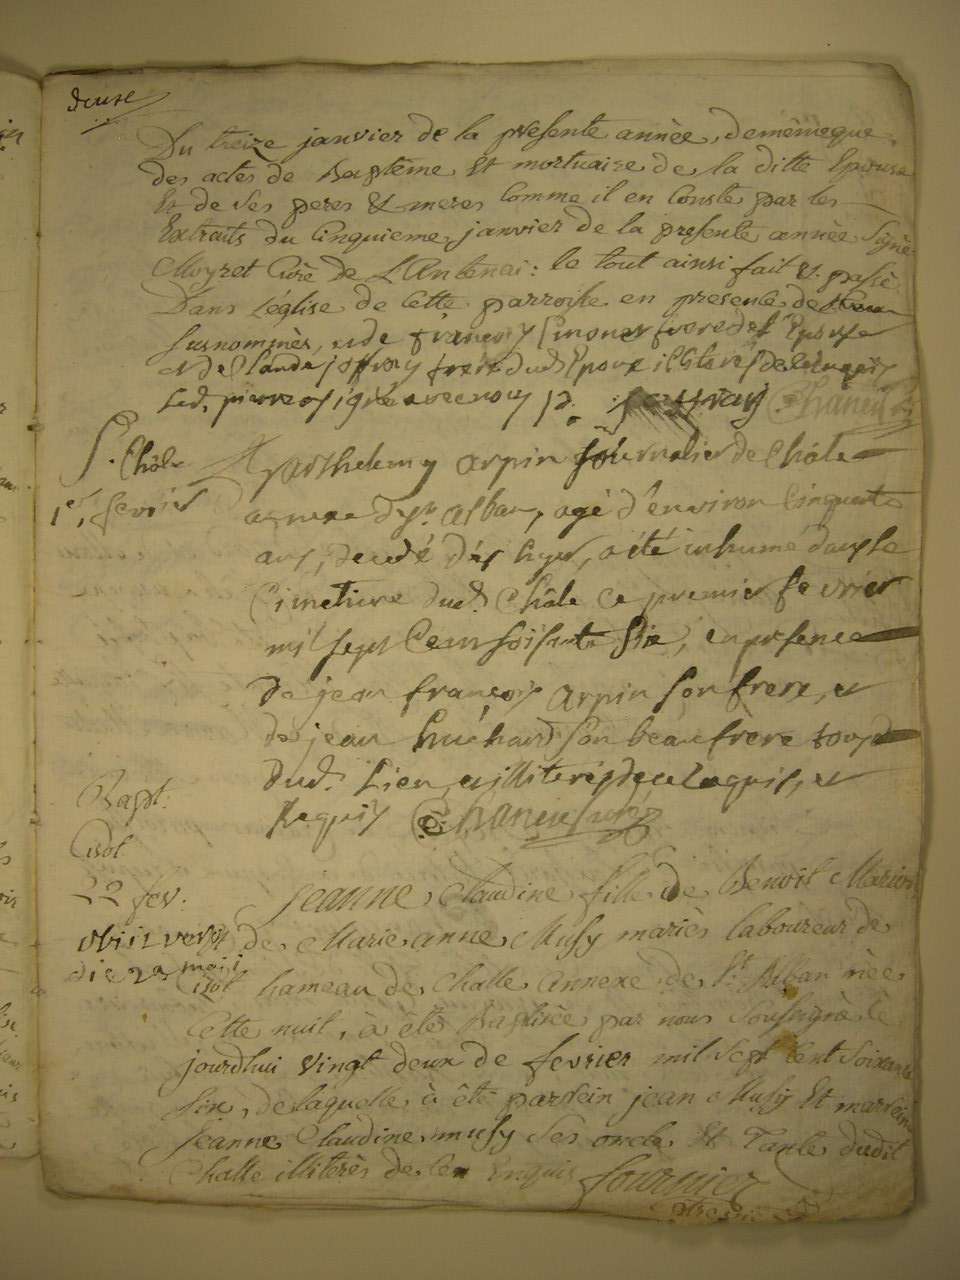 deuse
Du treize janvier de la presente année, demême que
des actes de Baptême Et mortuaire de la ditte Epouse
Et de Ses peres & meres Comme il en Conste par les
Extraits du Cinquieme janvier de la presente année Signé
Moyret Curé de L'Antenai : le tout ainsi fait & passé
Dans L'église de Cette parroisse en presence de
susnommés, et de françoy frere de l'Epouse
et de Claude joffray frere dud. Epoux illiterés de
Led. pierre signé avec nous joffray Chaneu
S. Châle Barthelemy arpin journalier de Châle
1er fevrier annexe de St. alban, agé d'environ Cinquante
ans, decedé dés hyer, a été inhumé dans le
Cimetiere dud. Châle Ce premier fevrier
mil sept Cent soissante Six, en presence
de jean françoy arpin son frere, et
de jean huchard son beau frere tous
dud. Lieu illiterés de ce enquis, et
Requis Chaneu curé
Bapt.
Cisot
22 fev. jeanne Claudine fille de Benoit
obiit de Marie anne Musy mariés laboureur de
die 2a maii
Cisot hameau de Challe annexe de St. Alban née
Cette nuit, à été Baptisée par nous Soussigné Ce
jourdhui vingt deux de fevrier mil sept Cent Soixante
Six, de laquelle à été parrein jean Musy Et marreine
jeanne Claudine musy Ses oncle Et Tante dudit
Challe illiterés de Ce Enquis fournier